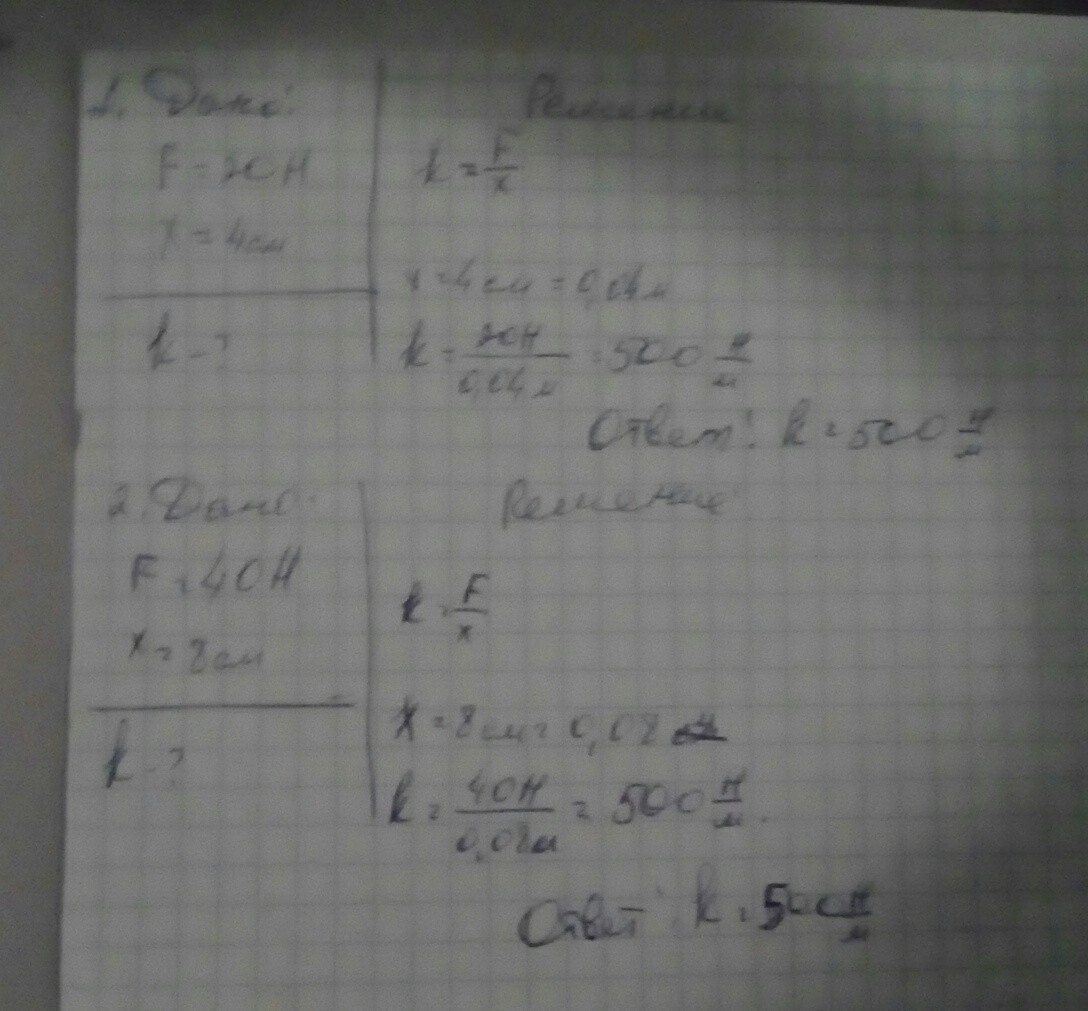 1. Дано:
F = 20 Н
x = 4 см
k - ?
Решение
k = F/x
x = 4 см = 0,04 м
k = 20Н/0,04 м = 500 Н/м
Ответ: k = 500 Н/м
2. Дано:
F = 40 Н
x = 8 см
k - ?
Решение
k = F/x
x = 8 см = 0,08 м
k = 40Н/0,08м = 500 Н/м.
Ответ: k = 500 Н/м